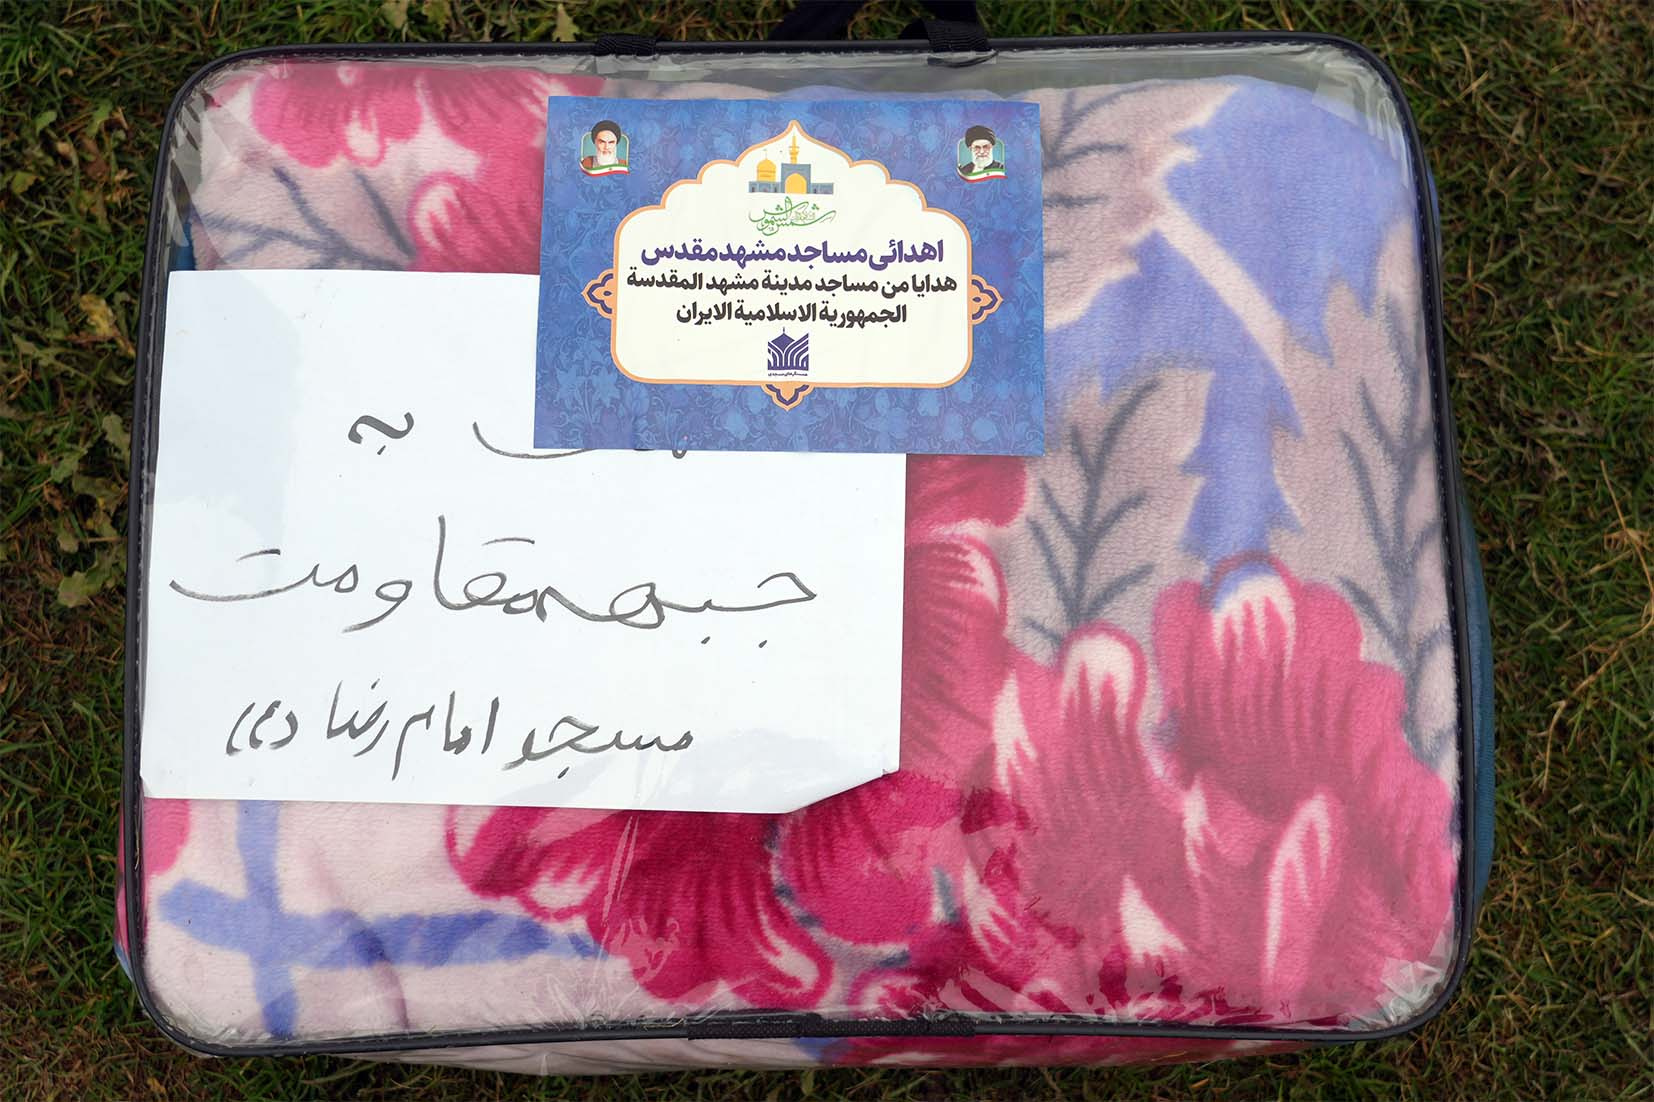 شمس الشموس
اهدائی مساجد مشهد مقدس
هدايا من مساجد مدينة مشهد المقدسة
الجمهورية الاسلامية الايران
به
جبهه مقاومت
مسجد امام رضا